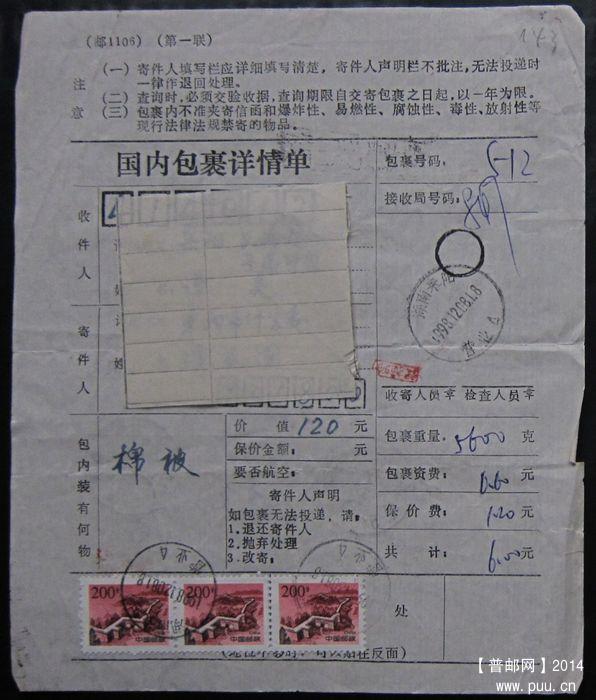 (邮1106)(第一联)
143
注意
(一) 寄件人填写栏应详细填写清楚，寄件人声明栏不批注，无法投递时
一律作退回处理。
(二) 查询时，必须交验收据，查询期限自交寄包裹之日起，以一年为限。
(三) 包裹内不准夹寄信函和爆炸性、易燃性、腐蚀性、毒性、放射性等
现行法律法规禁寄的物品。
国内包裹详情单
包裹号码：
5-12
接收局号码：
收件人
湖南耒阳
1998.12.08.18
营业 A
寄件人
姓
收寄人员章 检查人员章
包内装有何物
棉被
价 值 120 元
保价金额： 元
要否航空：
寄件人声明
如包裹无法投递，请：
1.退还寄件人
2.抛弃处理
3.改寄：
包裹重量：5600 克
包裹资费： 元
保 价 费：1.20 元
共 计：6.00 元
200分
200分
200分
中国邮政
中国邮政
中国邮政
处
【普邮网】2014
www.puu.cn